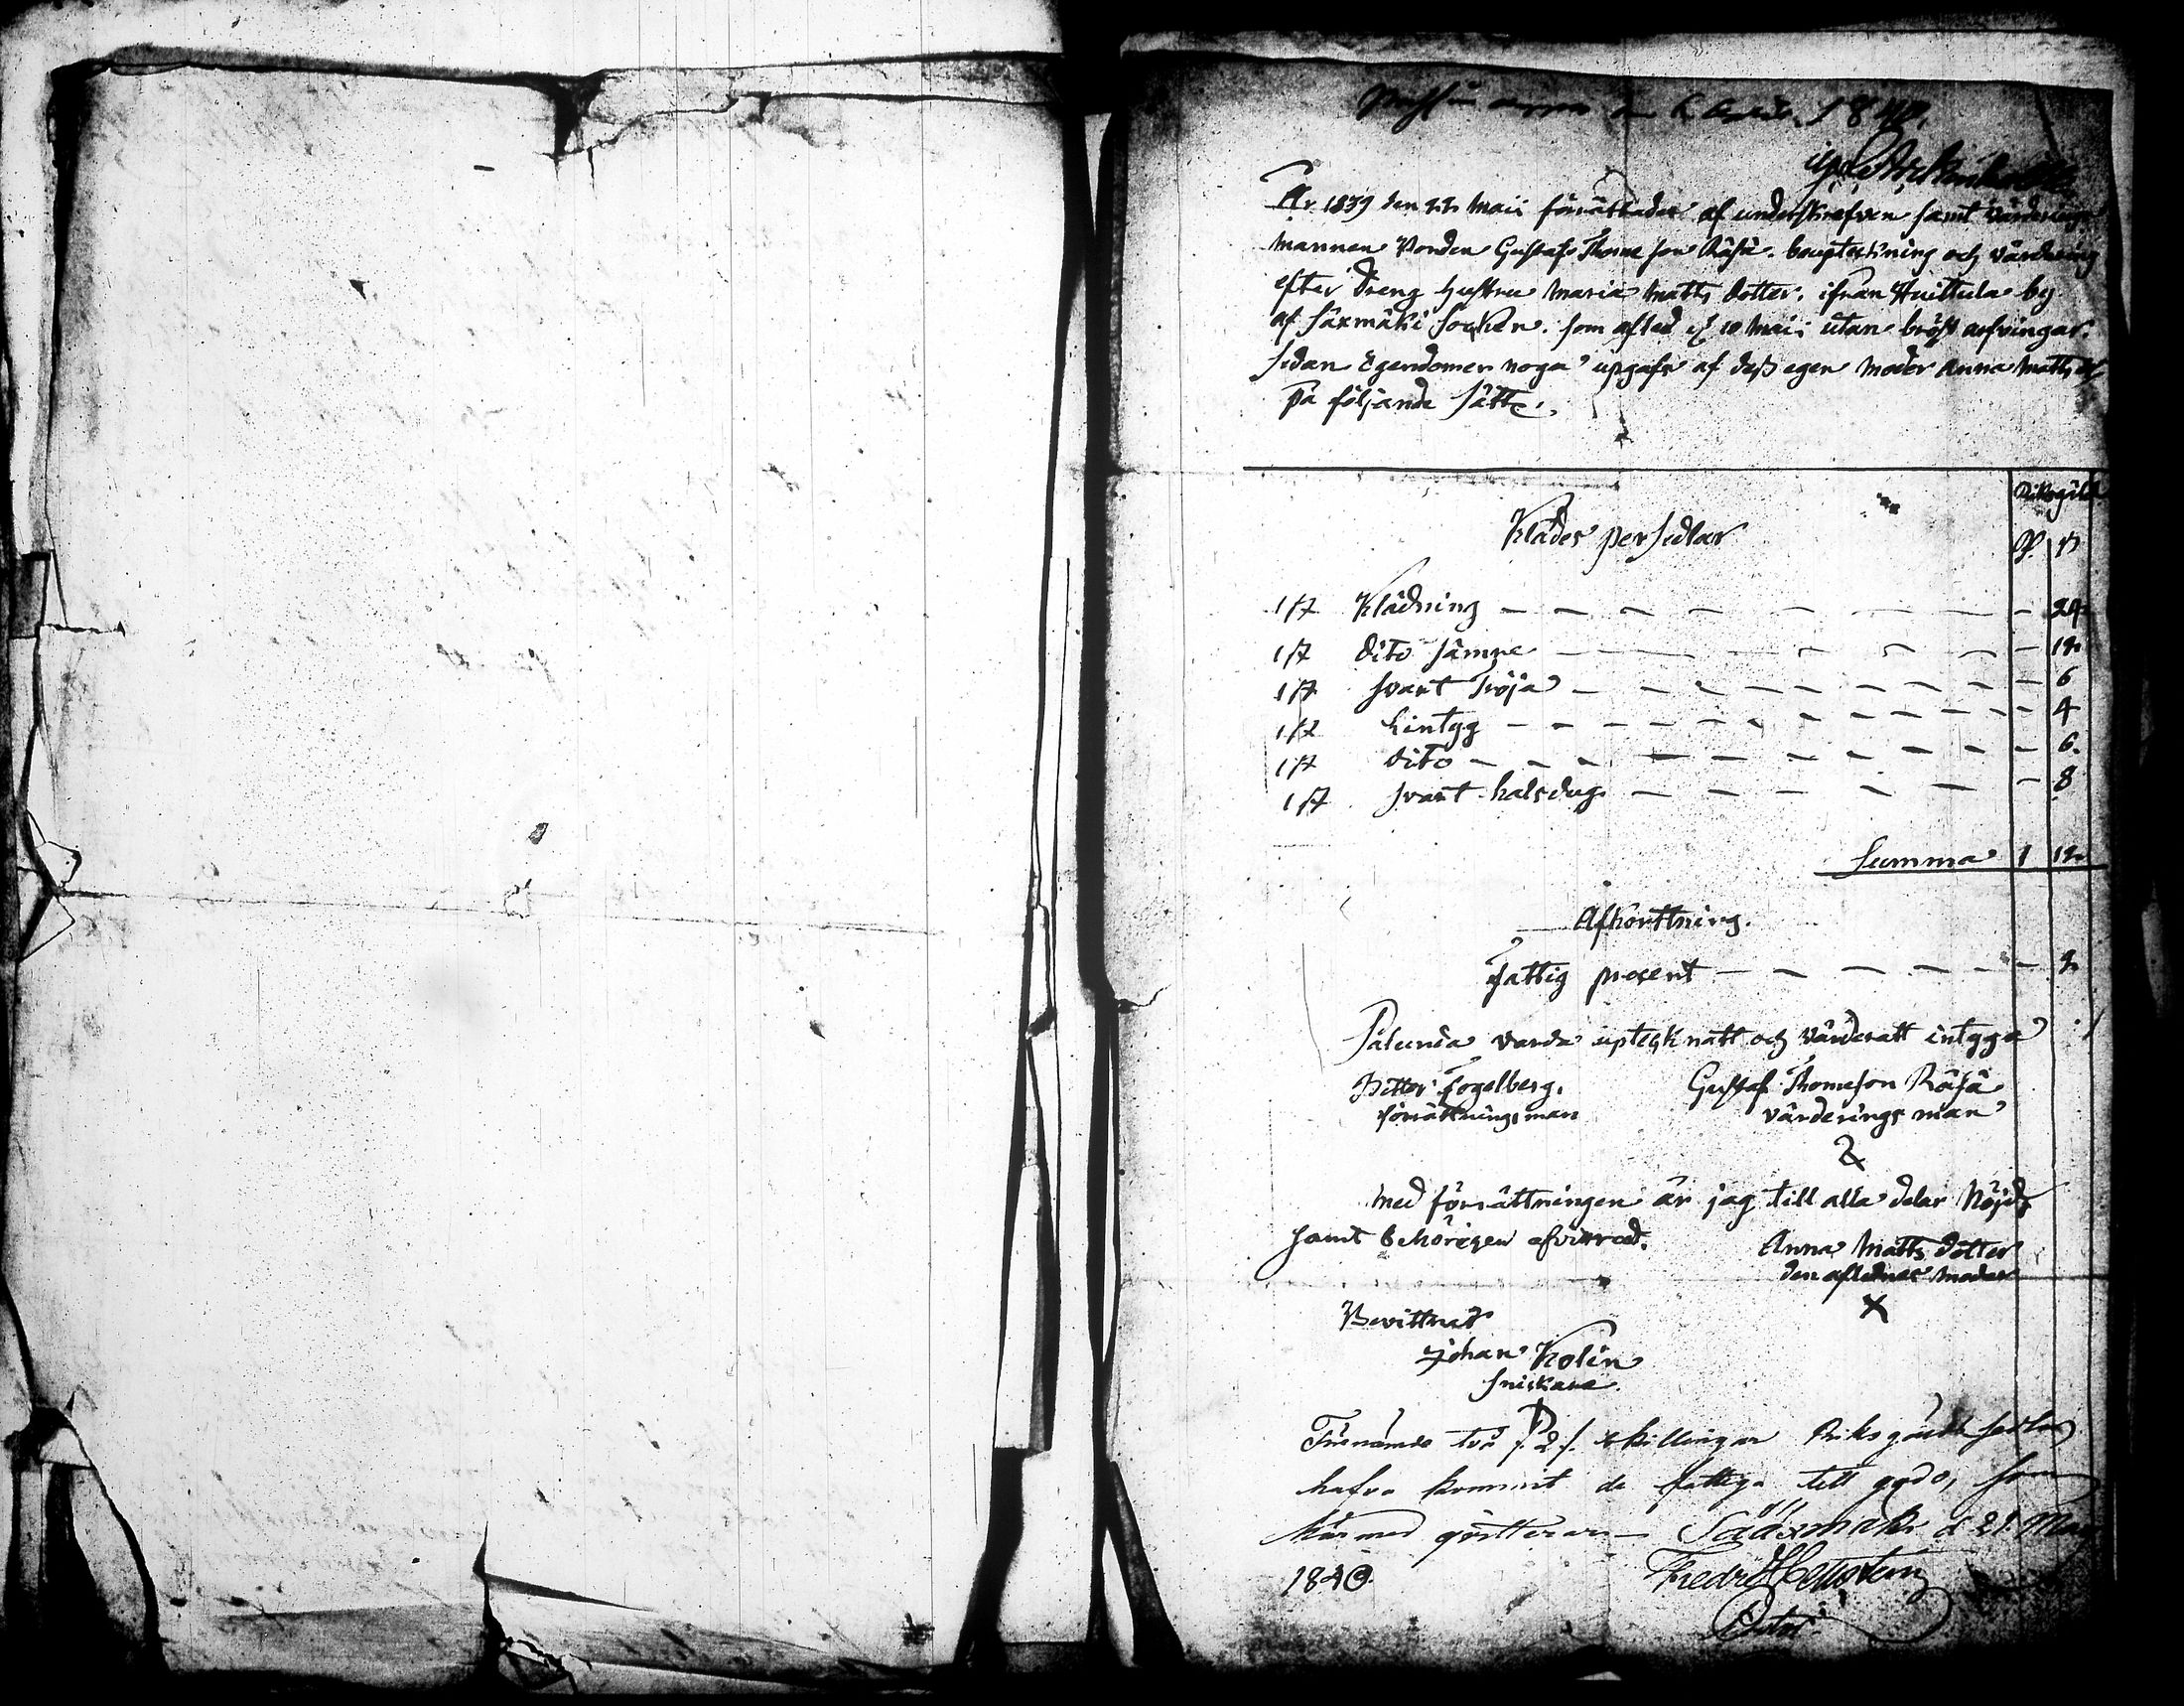 1840.
År 1839 den 22 Maii förrättades af underskrefven samt värderings
mannen Bonden Gustaf Thomeson Räfsä. boupteckning och värdering
efter Dreng hustru Maria Matts dotter. ifrån Huittula by
af Säxmäki Socken. som afled d 10 Maii utan bröst arfvingar.
sedan Egendomen noga upgafs af dess egen moder Anna Matts dr
på följande sätt.
Riksgäld
Klädes persedlar
R. s
1 st Klädning — — — 24
1 st dito sämre — — — 12
1 st svart Tröja — — — 6
1 st — — — 4
1 st dito — — — 6.
1 st svart halsdug — — — 8
Summa 1 12
Afkorttning.
Fattig procent — — — 2
Sålunda varda uptecknatt och värderatt intyga
Petter Fogelberg. Gustaf Thomeson Räfsä
förrättningsman värderings man
Med förrättningen är jag till alla delar Nöjd
samt Behörigen afvittrad. Anna Matts dotter
den aflednas moder
X
Bevittnat
Johan Kolin
Snickare.
Förnämde två /: 2 :/ skillingar Riksgäldt sedlar
hafva kommit de fattiga till godo, som
härmed qvitteras — Sääxmäki d 21 Maj
1840. Fredr